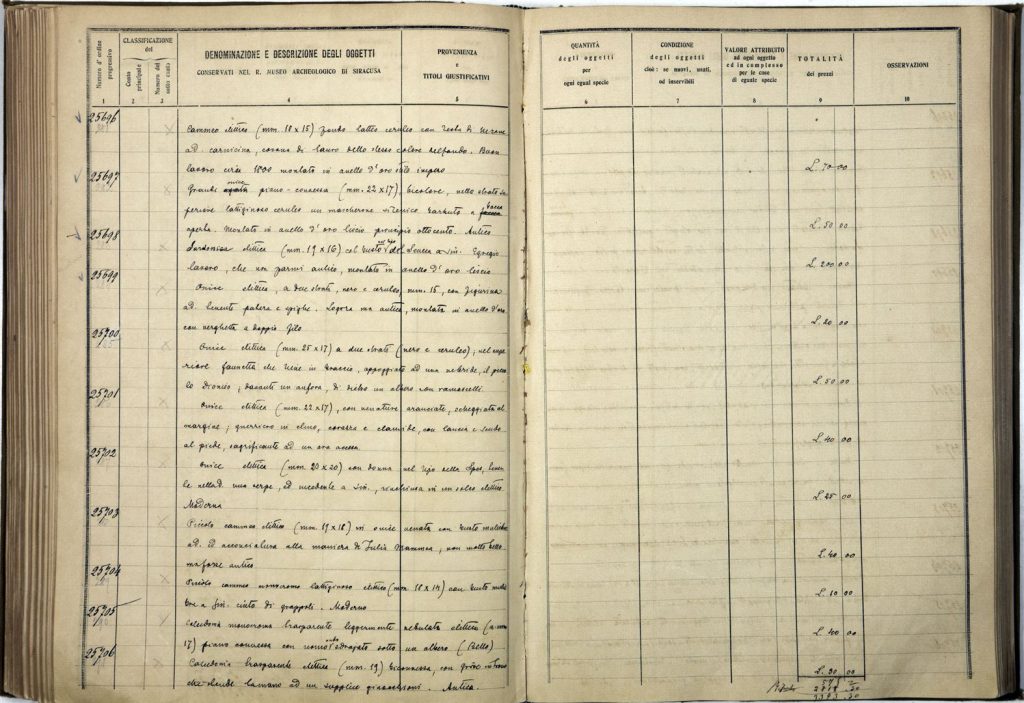 Numero d'ordine progressivo
CLASSIFICAZIONE del
Conto principale
Numero del sotto conto
DENOMINAZIONE E DESCRIZIONE DEGLI OGGETTI
CONSERVATI NEL R. MUSEO ARCHEOLOGICO DI SIRACUSA
PROVENIENZA
e
TITOLI GIUSTIFICATIVI
QUANTITÀ
degli oggetti
per
ogni egual specie
CONDIZIONE
degli oggetti
cioè: se nuovi, usati,
od inservibili
VALORE ATTRIBUITO
ad ogni oggetto
ed in complesso
per le cose
di eguale specie
TOTALITÀ
dei prezzi
OSSERVAZIONI
1 2 3 4 5 6 7 8 9 10
25696
Cammeo elittico (mm. 18 x 15) fondo latteo ceruleo con testa di Nerone
ad. carnicina, corona di lauro dello stesso colore del fondo. Buon
lavoro circa 1800 montato in anello d'oro stile impero
L. 70 00
25697
Grande onice piano-connessa (mm. 22 x 17), bicolore, nello strato su
periore lattiginoso ceruleo un mascherone silenico barbuto a bocca
aperta. Montato in anello d'oro liscio, principio ottocento. Antico
L. 50 00
25698
Sardonica elittica (mm. 19 x 16) col busto di Seneca a sin. Egregio
lavoro, che non parmi antico, montato in anello d'oro liscio
L. 200 00
25699
Onice elittica, a due strati, nero e ceruleo, mm. 15, con figurina
ad. tenente patera e spighe. Logora ma antica, montata in anello d'oro
con verghetta a doppio filo
L. 20 00
25700
Onice elittica (mm. 25 x 17) a due strati (nero e ceruleo); nel supe
riore faunetta che tiene in braccio, appoggiato ad una nebride, il picco
lo Dioniso; davanti un'anfora, di dietro un albero con ramoscelli.
L. 50 00
25701
Onice elittica (mm. 22 x 17), con venature aranciate, scheggiata al
margine; guerriero in elmo, corazza e clamide, con lancia e scudo
al piede, sagrificante ad un'ara accesa
L. 40 00
25702
Onice elittica (mm. 20 x 20) con donna nel tipo della Spes, tenen
te nella d. una verga, ed incedente a sin., rinchiusa in un solco elittico
Moderna
L. 25 00
25703
Piccolo cammeo elittico (mm. 19 x 18) in onice venata con busto muliebre
ad. ed acconciatura alla maniera di Julia Mammea, non molto bello
ma forse antico
L. 40 00
25704
Piccolo cammeo monocromo lattiginoso elittico (mm. 18 x 14) con busto mulie
bre a sin. cinto di grappoli. Moderno
L. 10 00
25705
Calcedonia monocroma trasparente leggermente nebulata elittica (a mm.
17) piano connessa con uomo sdraiato sotto un albero (Bello)
L. 400 00
25706
Calcedonia trasparente elittica (mm. 19) biconnessa, con
che stende la mano ad un supplice ginocchioni. Antica.
L. 30 00